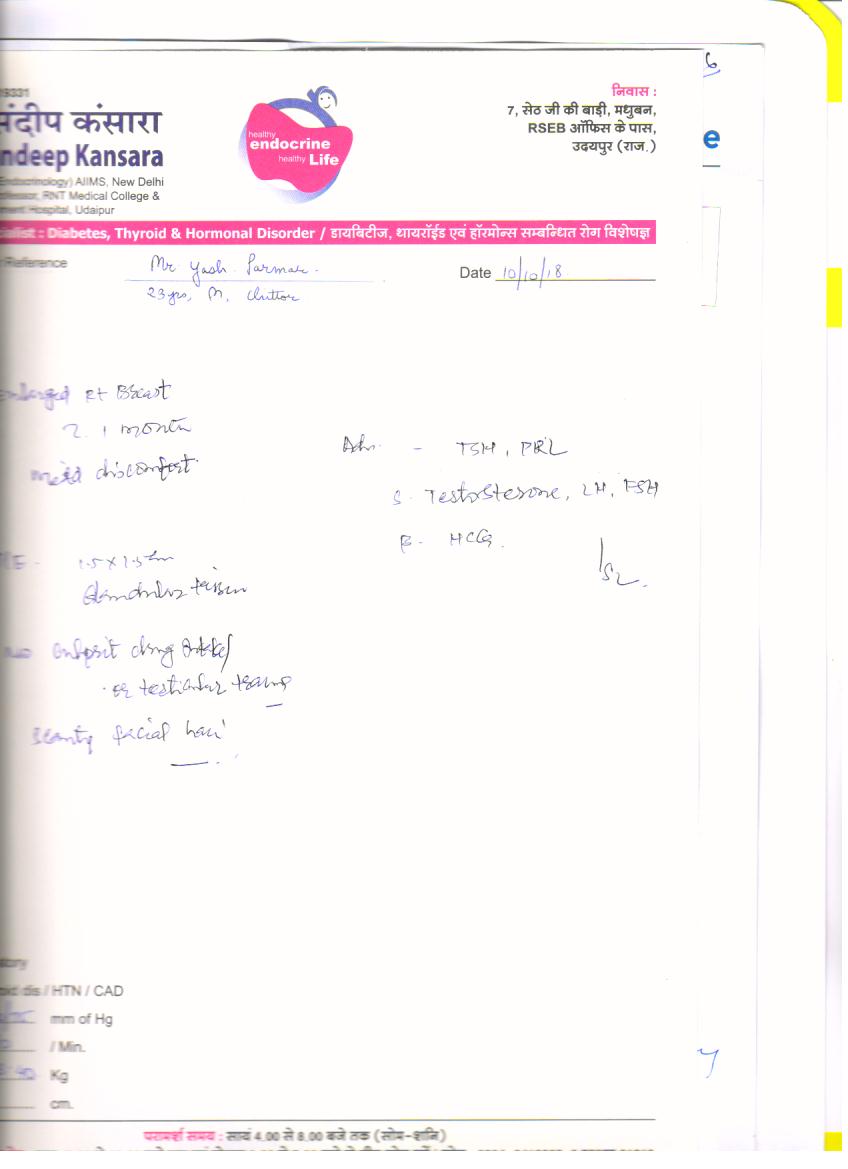 19331
संदीप कंसारा
ndeep Kansara
Endocrinology) AIIMS, New Delhi
ofessor, RNT Medical College &
ment Hospital, Udaipur
healthy
endocrine
healthy Life
निवास :
7, सेठ जी की बाड़ी, मधुबन,
RSEB ऑफिस के पास,
उदयपुर (राज.)
6
e
alist : Diabetes, Thyroid & Hormonal Disorder / डायबिटीज, थायरॉईड एवं हॉरमोन्स सम्बन्धित रोग विशेषज्ञ
Reference
Mr Yash Parmar.
Date 10/10/18
23 yrs, M, Chittor
enlarged Rt Breast
1 month
mild discomfort
Adv. - TSH, PRL
S. Testosterone, LH, FSH
B- HCG.
1.5 x 1.5 cm
Glandular tissue
No drug intake/
or testicular trauma
Scanty facial hair
story
oid dis / HTN / CAD
mm of Hg
/ Min.
Kg
cm.
परामर्श समय : सायं 4.00 से 8.00 बजे तक (सोम-शनि)